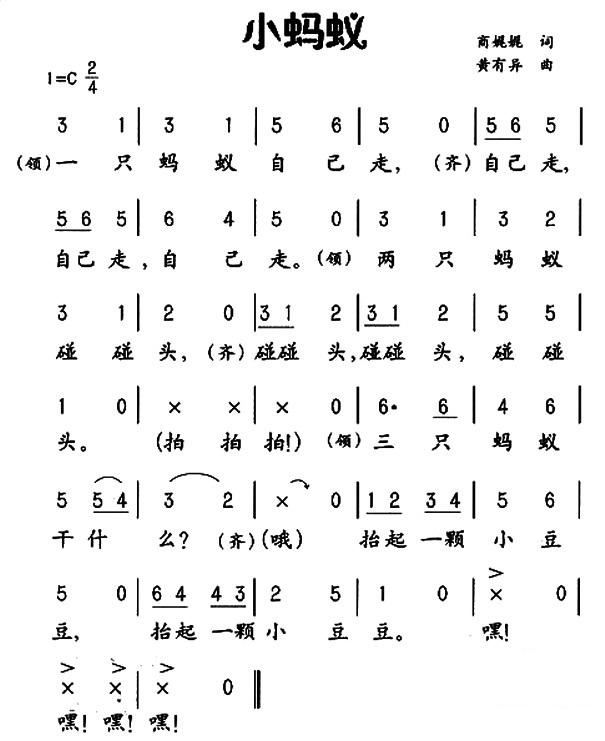 小蚂蚁
商娓娓 词
1=C 2/4
黄有异 曲
3 1 | 3 1 | 5 6 | 5 0 | 5 6 5 |
(领)一 只 蚂 蚁 自 己 走, (齐)自己走,
5 6 5 | 6 4 | 5 0 | 3 1 | 3 2 |
自己走,自 己 走。(领) 两 只 蚂 蚁
3 1 | 2 0 | 3 1 2 | 3 1 2 | 5 5 |
碰 碰 头, (齐)碰碰 头,碰碰 头, 碰 碰
1 0 | × × | × 0 | 6· 6 | 4 6 |
头。 (拍 拍 拍!) (领)三 只 蚂 蚁
5 5 4 | 3 2 | × 0 | 1 2 3 4 | 5 6 |
干 什 么? (齐)(哦) 抬起 一颗 小 豆
5 0 | 6 4 4 3 | 2 5 | 1 0 | × 0 |
豆, 抬起 一颗 小 豆 豆。 嘿!
× × | × 0 ‖
嘿! 嘿! 嘿!